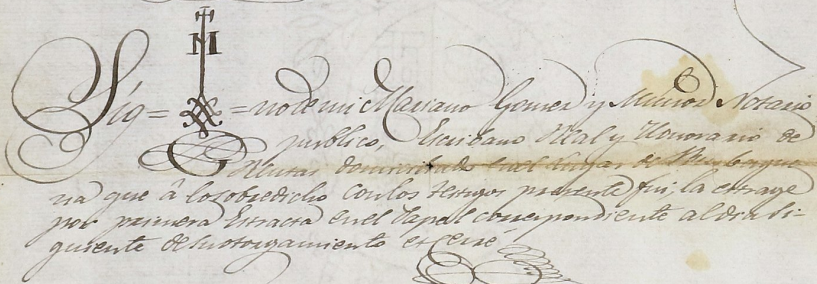 Sig= M =no de mi Mariano Gomez y Muñoz Notario
publico, Escribano Real y Honorario de
Rentas domiciliado en el Lugar de
na que â lo sobredicho con los testigos presente fui, la estrage
por primera Estracta en el Papel correspondiente al dia si-
guiente de su otorgamiento et cerré